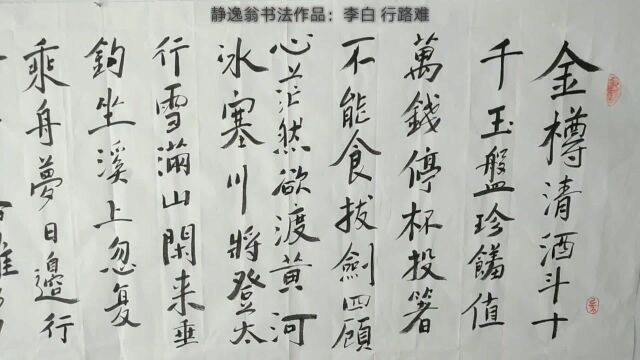 静逸翁书法作品：李白 行路难
金樽清酒斗十
千玉盤珍饈值
萬錢停杯投箸
不能食拔劍四顧
心茫然欲渡黄河
冰塞川將登太
行雪滿山閑来垂
釣坐溪上忽复
乘舟夢日邊行